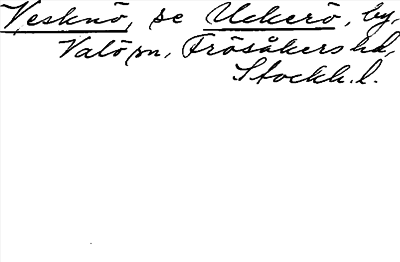 Vesknö, se Uckerö, by,
Valö sn, Frösåkers hd,
Stockh. l.